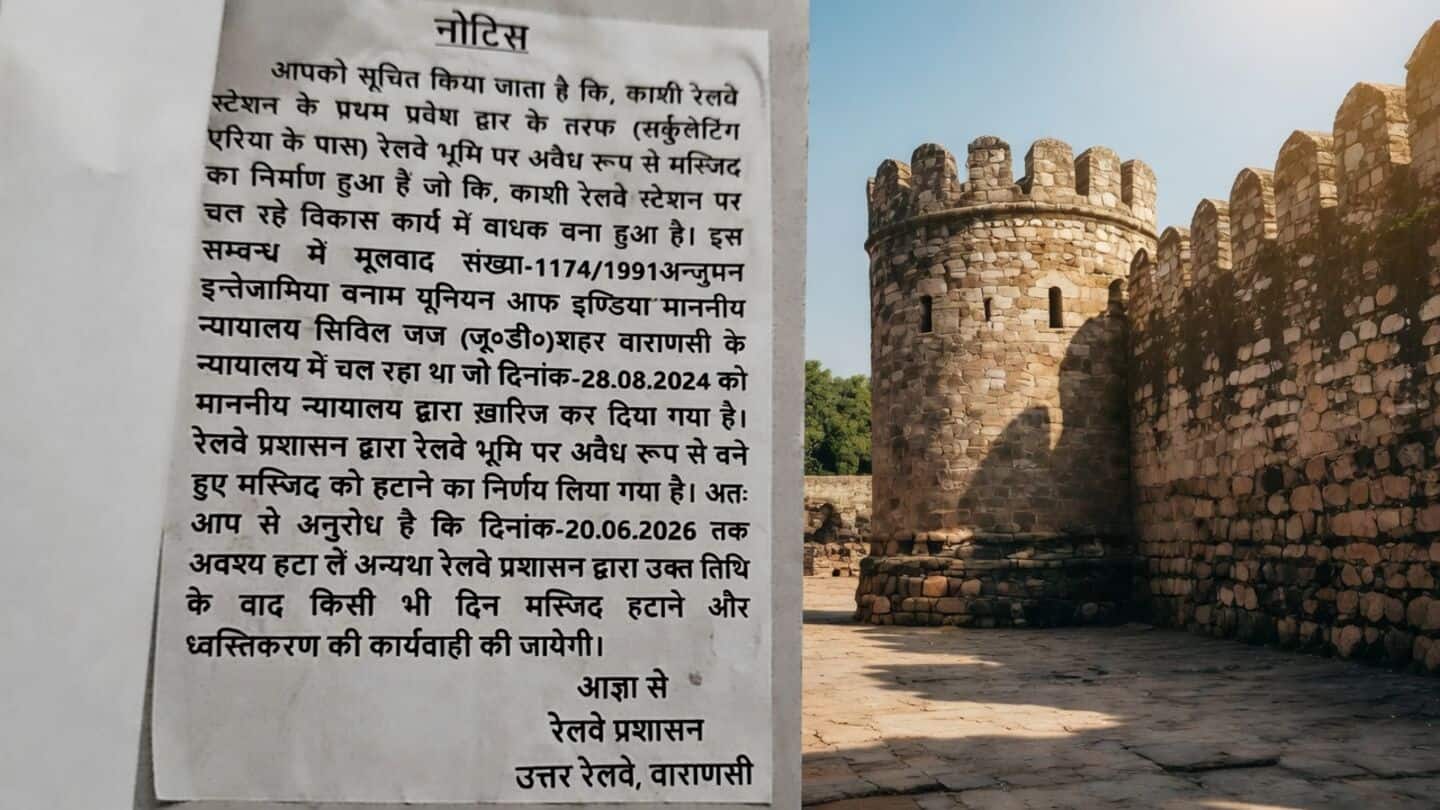 नोटिस
आपको सूचित किया जाता है कि, काशी रेलवे
स्टेशन के प्रथम प्रवेश द्वार के तरफ (सर्कुलेटिंग
एरिया के पास) रेलवे भूमि पर अवैध रूप से मस्जिद
का निर्माण हुआ हैं जो कि, काशी रेलवे स्टेशन पर
चल रहे विकास कार्य में वाधक वना हुआ है। इस
सम्वन्ध में मूलवाद संख्या-1174/1991अन्जुमन
इन्तेजामिया वनाम यूनियन आफ इण्डिया माननीय
न्यायालय सिविल जज (जू०डी०)शहर वाराणसी के
न्यायालय में चल रहा था जो दिनांक-28.08.2024 को
माननीय न्यायालय द्वारा ख़ारिज कर दिया गया है।
रेलवे प्रशासन द्वारा रेलवे भूमि पर अवैध रूप से वने
हुए मस्जिद को हटाने का निर्णय लिया गया है। अतः
आप से अनुरोध है कि दिनांक-20.06.2026 तक
अवश्य हटा लें अन्यथा रेलवे प्रशासन द्वारा उक्त तिथि
के वाद किसी भी दिन मस्जिद हटाने और
ध्वस्तिकरण की कार्यवाही की जायेगी।
आज्ञा से
रेलवे प्रशासन
उत्तर रेलवे, वाराणसी